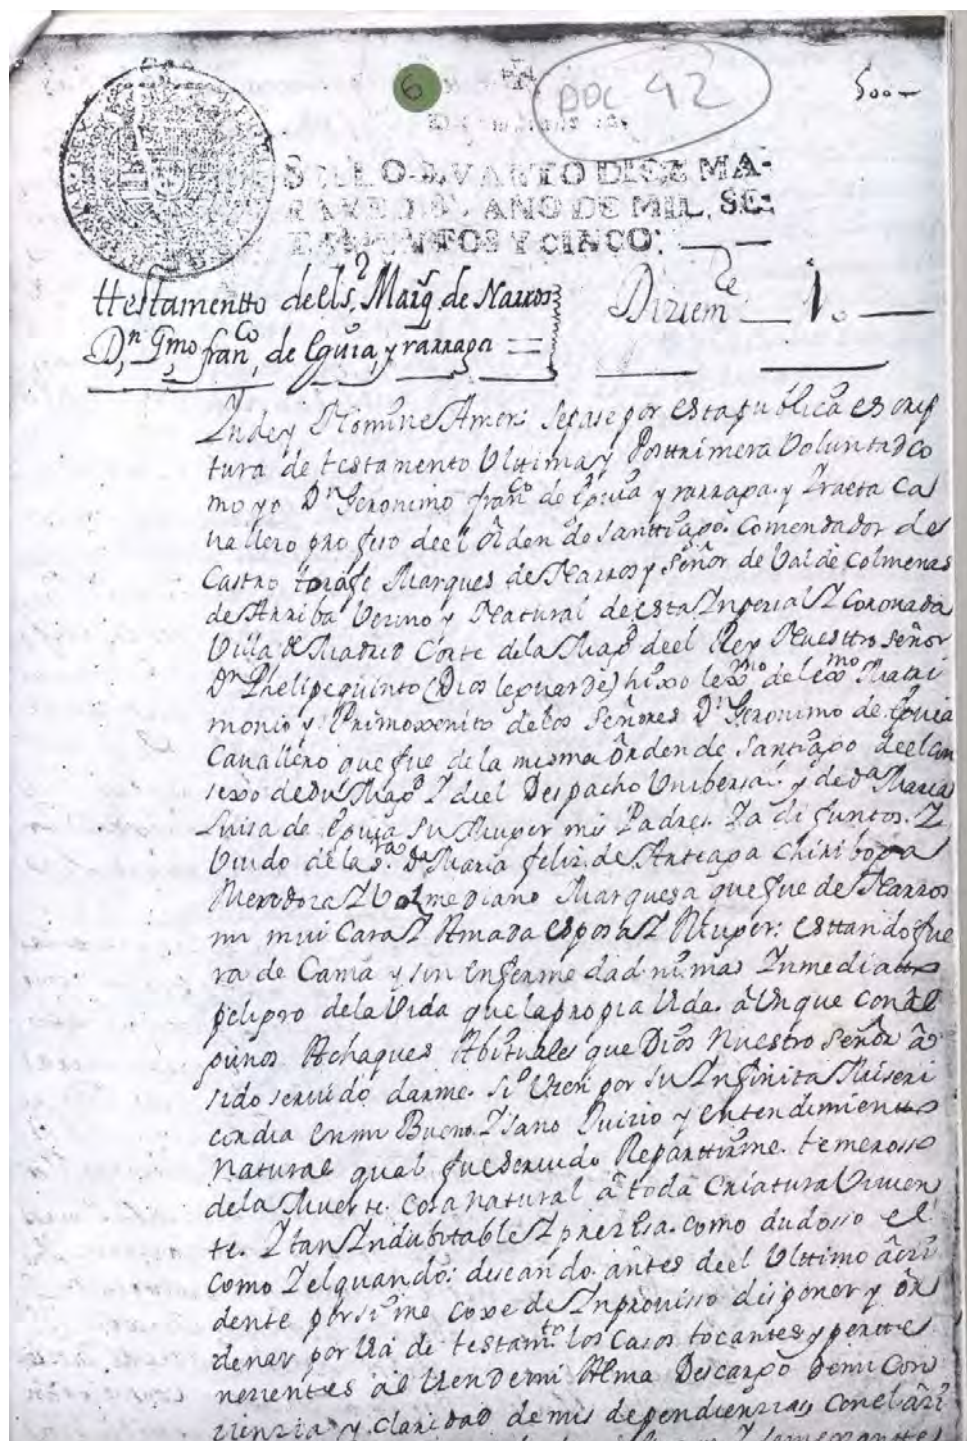 6
DOC 42
500—
SELLO QVARTO DIEZ MA-
RAVEDIS, AÑO DE MIL, SE-
TECIENTOS Y CINCO.
ttestamentto deel sr. Marq. de Narros
Dn. Gmo franco. de Eguia, y rarraga =
Diziem.e 1.o
Yn dey Nomine Amen: Sepase por esta publica escrip
tura de testamento Ultima y Posttrimera Voluntad co
mo yo Dn Geronimo franco de Eguia y rarraga y Yraeta Ca
uallero profeso deel Orden de Santtiago. Comendador de
Castro torafe Marques de Narros y Señor de Val de Colmenas
de Arriba Vezino y Natural de esta Ynperial Y Coronada
Villa de Madrid Corte dela Magd. deel Rey Nuesttro Señor
Dn Phelipe quinto (Dios le guarde) hixo lexmo de lexmo Matri
monio y Primoxenito de los Señores Dn Geronimo de Eguia
Cauallero que fue de la misma Orden de Santiago deel Con
sexo de su Magd. Y deel Despacho Unibersal y de Da Maria
Luisa de Eguia su Muger mis Padres Ya difuntos. Y
Viudo de la sra. Da Maria feliz de Arteaga Chiriboga
Mendoza Y Valmediano Marquesa que fue de Narros
mi mui Cara Y Amada esposa Y Muger: esttando fue
ra de Cama y sin enfermedad ni mas Ynmediatto
peligro dela Vida que la propia Vida. aUnque con al
gunos Achaques Abituales que Dios Nuestro Señor â
sido seruido darme. si Vien por su Ynfinita Miseri
cordia en mi Bueno Y sano Juizio y entendimientto
natural qual fue seruido Reparttirme. temerosso
dela Muerte. cosa natural â toda Criatura Viuien
te. Y tan Yndubitable Y prezissa. como dudosso el
Como Y el quando: deseando antes deel Ulttimo âczi
dente por si me coxe de Ynprouisso disponer y ôr
denar por Via de testamto. los Casos tocantes y pertte
nezientes al Vien de mi Alma Descargo de mi Con
zienzia y claridad de mis dependienzias